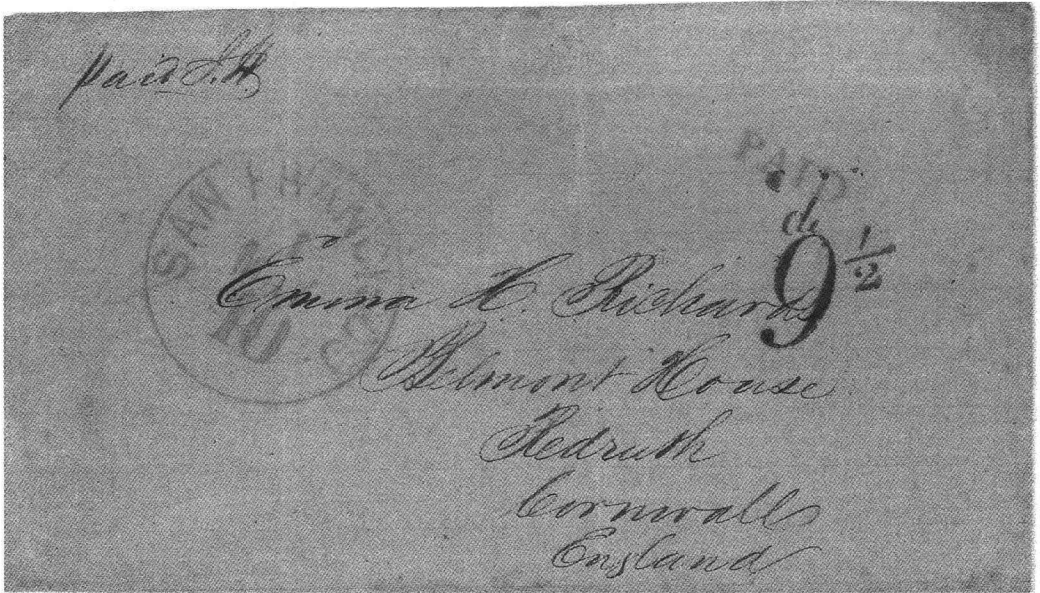 Paid
PAID
SAN FRANCISCO
10
d.
9 1/2
Emma H. Richards
Belmont House
Redruth
Cornwall
England